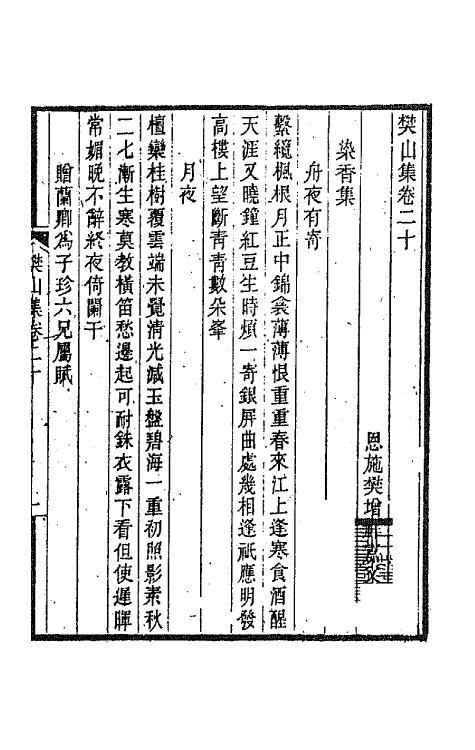 樊山集卷二十
恩施樊增
染香集
舟夜有寄
繫纜楓根月正中錦衾薄薄恨重重春來江上逢寒食酒醒
天涯又曉鐘紅豆生時煩一寄銀屏曲處幾相逢祗應明發
高樓上望斷青青數朵峯
月夜
檀欒桂樹覆雲端未覺清光減玉盤碧海一重初照影素秋
二七漸生寒莫教橫笛愁邊起可耐銖衣露下看但使遲暉
常媚晚不辭終夜倚闌干
贈蘭卿為子珍六兄屬賦
樊山集卷二十